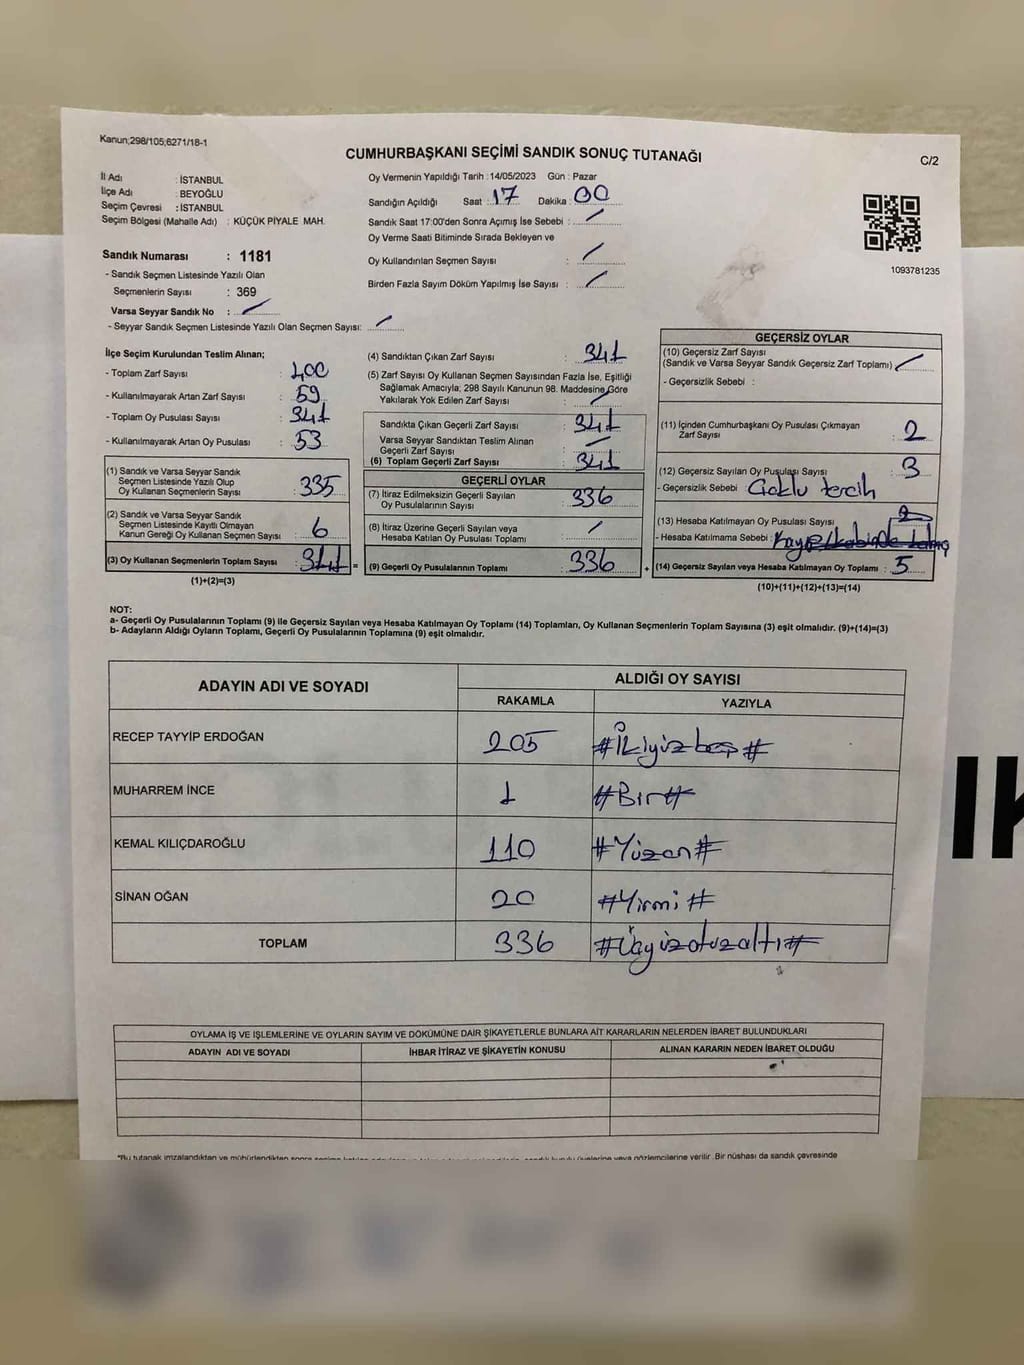 Kanun;298/105;6271/18-1
CUMHURBAŞKANI SEÇİMİ SANDIK SONUÇ TUTANAĞI
C/2
İl Adı : İSTANBUL
İlçe Adı : BEYOĞLU
Seçim Çevresi : İSTANBUL
Seçim Bölgesi (Mahalle Adı) : KÜÇÜK PİYALE MAH.
Oy Vermenin Yapıldığı Tarih : 14/05/2023 Gün : Pazar
Sandığın Açıldığı Saat : 17 Dakika : 00
Sandık Saat 17:00'den Sonra Açımış İse Sebebi :
Oy Verme Saati Bitiminde Sırada Bekleyen ve
Oy Kullandırılan Seçmen Sayısı :
Birden Fazla Sayım Döküm Yapılmış İse Sayısı :
1093781235
Sandık Numarası : 1181
- Sandık Seçmen Listesinde Yazılı Olan
Seçmenlerin Sayısı : 369
Varsa Seyyar Sandık No :
- Seyyar Sandık Seçmen Listesinde Yazılı Olan Seçmen Sayısı:
İlçe Seçim Kurulundan Teslim Alınan;
- Toplam Zarf Sayısı : 400
- Kullanılmayarak Artan Zarf Sayısı : 59
- Toplam Oy Pusulası Sayısı : 341
- Kullanılmayarak Artan Oy Pusulası : 53
(1) Sandık ve Varsa Seyyar Sandık
Seçmen Listesinde Yazılı Olup
Oy Kullanan Seçmenlerin Sayısı : 335
(2) Sandık ve Varsa Seyyar Sandık
Seçmen Listesinde Kayıtlı Olmayan
Kanun Gereği Oy Kullanan Seçmen Sayısı : 6
(3) Oy Kullanan Seçmenlerin Toplam Sayısı : 341 =
(1)+(2)=(3)
(4) Sandıktan Çıkan Zarf Sayısı : 341
(5) Zarf Sayısı Oy Kullanan Seçmen Sayısından Fazla İse, Eşitliği
Sağlamak Amacıyla; 298 Sayılı Kanunun 98. Maddesine Göre
Yakılarak Yok Edilen Zarf Sayısı :
Sandıkta Çıkan Geçerli Zarf Sayısı : 341
Varsa Seyyar Sandıktan Teslim Alınan
Geçerli Zarf Sayısı :
(6) Toplam Geçerli Zarf Sayısı : 341
GEÇERLİ OYLAR
(7) İtiraz Edilmeksizin Geçerli Sayılan
Oy Pusulalarının Sayısı : 336
(8) İtiraz Üzerine Geçerli Sayılan veya
Hesaba Katılan Oy Pusulası Toplamı :
(9) Geçerli Oy Pusulalarının Toplamı : 336 +
GEÇERSİZ OYLAR
(10) Geçersiz Zarf Sayısı
(Sandık ve Varsa Seyyar Sandık Geçersiz Zarf Toplamı) :
- Geçersizlik Sebebi :
(11) İçinden Cumhurbaşkanı Oy Pusulası Çıkmayan
Zarf Sayısı : 2
(12) Geçersiz Sayılan Oy Pusulası Sayısı : 3
- Geçersizlik Sebebi : Çoklu tercih
(13) Hesaba Katılmayan Oy Pusulası Sayısı : 2
- Hesaba Katılmama Sebebi :
(14) Geçersiz Sayılan veya Hesaba Katılmayan Oy Toplamı : 5
(10)+(11)+(12)+(13)=(14)
NOT:
a- Geçerli Oy Pusulalarının Toplamı (9) ile Geçersiz Sayılan veya Hesaba Katılmayan Oy Toplamı (14) Toplamları, Oy Kullanan Seçmenlerin Toplam Sayısına (3) eşit olmalıdır. (9)+(14)=(3)
b- Adayların Aldığı Oyların Toplamı, Geçerli Oy Pusulalarının Toplamına (9) eşit olmalıdır.
ADAYIN ADI VE SOYADI
ALDIĞI OY SAYISI
RAKAMLA YAZIYLA
RECEP TAYYİP ERDOĞAN 205 #İkiyüzbeş#
MUHARREM İNCE 1 #Bir#
KEMAL KILIÇDAROĞLU 110 #Yüzon#
SİNAN OĞAN 20 #Yirmi#
TOPLAM 336 #Üçyüzotuzaltı#
OYLAMA İŞ VE İŞLEMLERİNE VE OYLARIN SAYIM VE DÖKÜMÜNE DAİR ŞİKAYETLERLE BUNLARA AİT KARARLARIN NELERDEN İBARET BULUNDUKLARI
ADAYIN ADI VE SOYADI İHBAR İTİRAZ VE ŞİKAYETİN KONUSU ALINAN KARARIN NEDEN İBARET OLDUĞU
*Bu tutanak imzalandıktan ve mühürlendikten sonra verilir. Bir nüshası da sandık çevresinde
IK